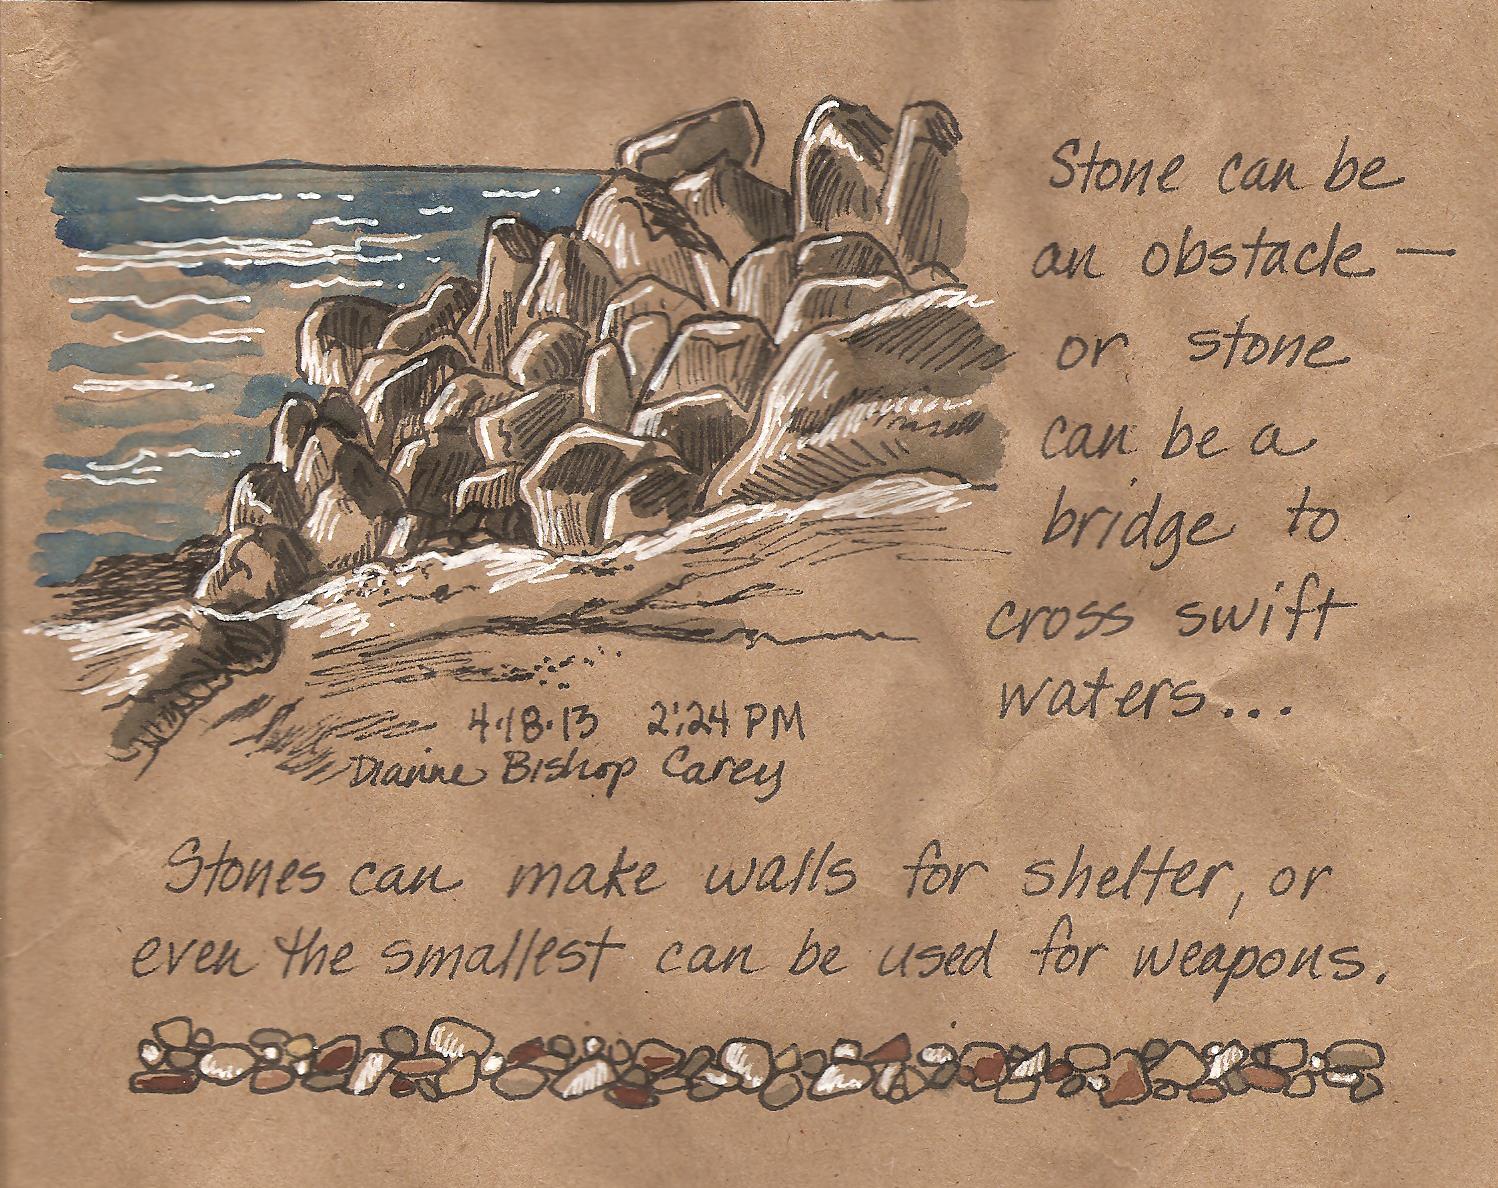 Stone can be
an obstacle —
or stone
can be a
bridge to
cross swift
waters...
4.18.13 2:24 PM
Dianne Bishop Carey
Stones can make walls for shelter, or
even the smallest can be used for weapons.